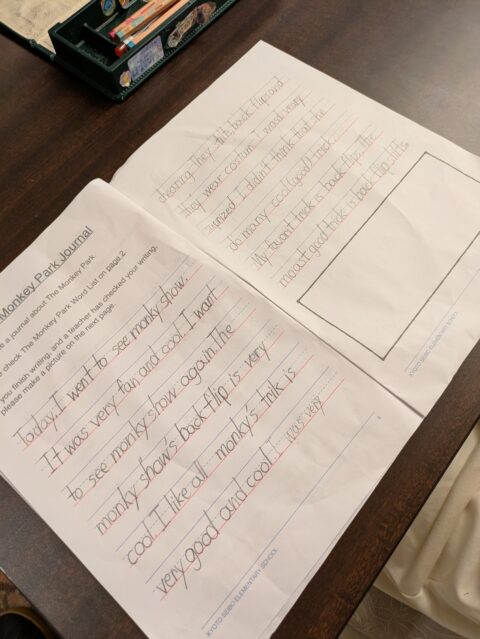 Monkey Park Journal
e a journal about The Monkey Park
check The Monkey Park Word List on page 2
you finish writing, and a teacher has checked your writing,
please make a picture on the next page.
Today, I went to see monky show.
It was very fan and cool. I want
to see monky show again. The
monky show's back flip is very
cool. I like all monky's trik is
very good and cool. I was very
KYOTO SEIBO ELEMENTARY SCHOOL
They back flip and
they wear costum. I was very
I didn't think that the
do many cool (good) trick.
My favorit trick is back flip. The
moast good trick is back flip
KYOTO SEIBO ELEMENTARY SCHOOL